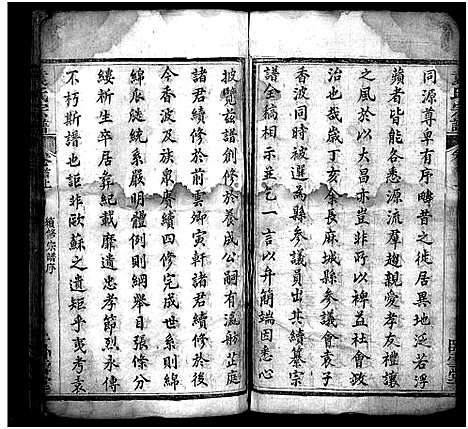 同源尊卑有序疇昔之徙居異地近若浮
蘋者皆能各悉源流羣趨親愛孝友禮讓
之風於以大昌亦豈非所以裨益社會政
治也哉歲丁亥余長麻城縣參議會袁子
香波同時被選為縣參議員出其續纂宗
譜全稿相示並乞一言以弁簡端因悉心
披覽茲譜創修於養成公嗣有瀛舫芷庭
諸君續修於前雲卿寅軒諸君續修於後
今香波及族衆賡續四修完成世系則綿
綿瓜瓞統系嚴明體例則綱舉目張條分
縷析生卒居葬紀載靡遺忠孝節烈永傳
不朽斯譜也詎非歐蘇之遺矩乎爰考袁
續修宗譜序